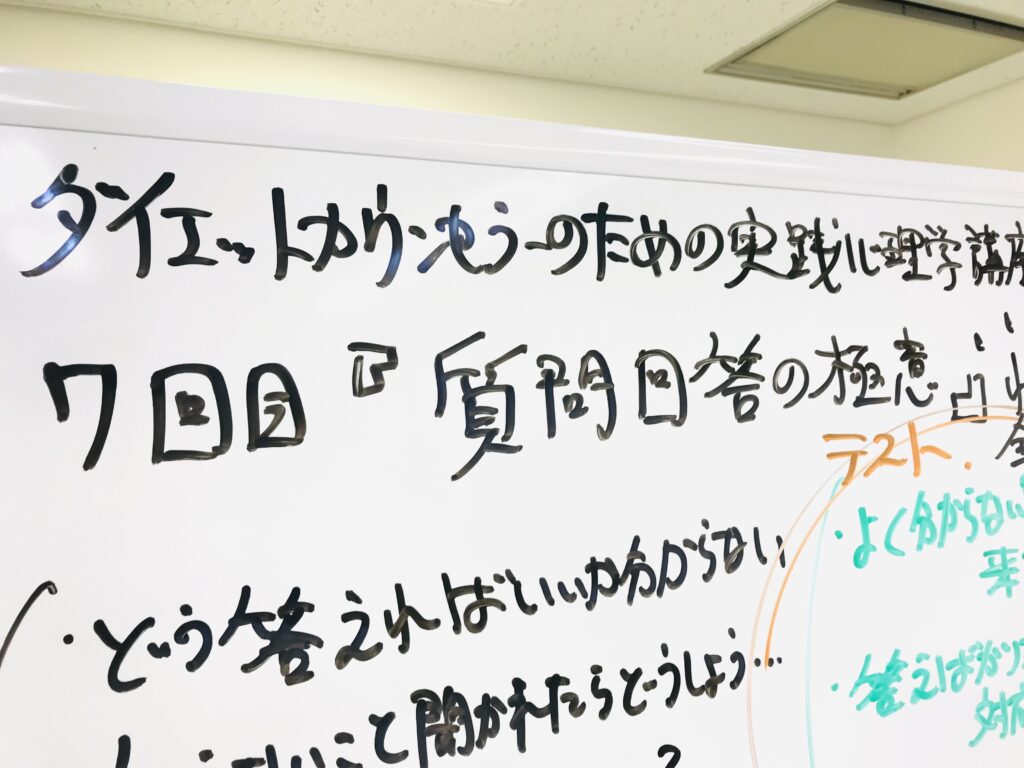 ダイエットカウンセラーのための実践心理学講座
7回目『質問回答の極意』
テスト.
・どう答えればいいか分からない
・よく分からない
来
こと聞かれたらどうしよう…
・答えばかり
対応
?